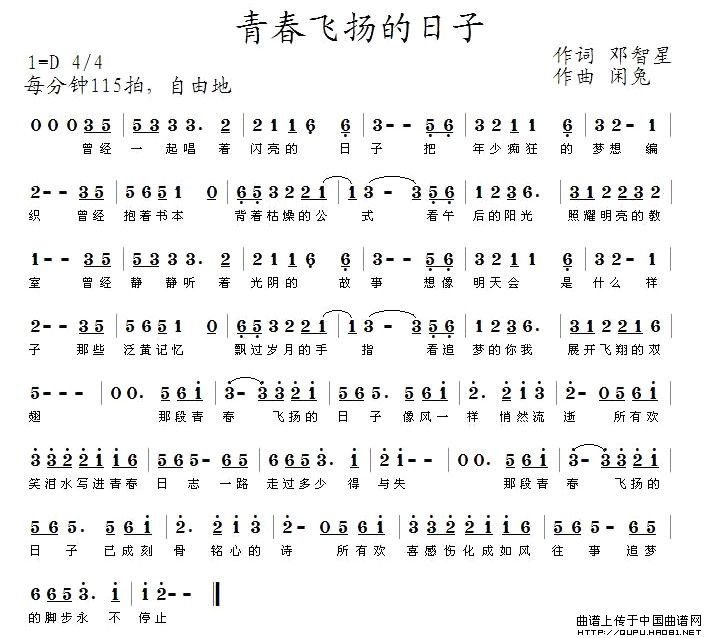 青春飞扬的日子
1=D 4/4
作词 邓智星
每分钟115拍，自由地
作曲 闲兔
0 0 0 3 5 | 5 3 3 3. 2 | 2 1 1 6 6 | 3 - - 5 6 | 3 3 2 1 1 6 | 3 2 - 1 |
曾经 一 起唱 着 闪亮的 日 子 把 年少痴狂 的 梦想 编
2 - - 3 5 | 5 6 5 1 0 | 6 5 3 2 2 1 | 1 3 - 3 5 6 | 1 2 3 6. | 3 1 2 2 1 6 |
织 曾经 抱着书本 背着枯燥的公 式 看午 后的阳光 照耀明亮的教
1 - - 3 5 | 5 3 3 3. 2 | 2 1 1 6 6 | 3 - - 5 6 | 3 2 1 6 | 3 2 - 1 |
室 曾经 静 静听 着 光阴的 故 事 想像 明天会 是 什么 样
2 - - 3 5 | 5 6 5 1 0 | 6 5 3 2 2 1 | 1 3 - 3 5 6 | 1 2 3 6. | 3 1 2 2 1 6 |
子 那些 泛黄记忆 飘过岁月的手 指 看追 梦的你我 展开飞翔的双
5 - - - | 0 0. 5 6 1 | 3 - 3 3 2 1 | 5 6 5. 5 6 1 | 2. 2 1 3 | 2 - 0 5 6 1 |
翅 那段青 春 飞扬的 日 子 像风一 样 悄然流 逝 所有欢
3 3 2 2 1 1 6 | 5 6 5 - 6 5 | 6 6 5 3. 1 | 2 1 - - | 0 0. 5 6 1 | 3 - 3 3 2 1 |
笑泪水写进青春 日 志 一路 走过多少 得 与失 那段青 春 飞扬的
5 6 5. 5 6 1 | 2. 2 1 3 | 2 - 0 5 6 1 | 3 3 2 2 1 1 6 | 5 6 5 - 6 5 |
日 子 已成刻 骨 铭心的 诗 所有欢 喜感伤化成如风 往 事 追梦
6 6 5 3. 2 | 1. 2 2 - - ‖
的脚步永 不 停止
曲谱上传于中国曲谱网
HTTP://QUPU.HAO81.NET